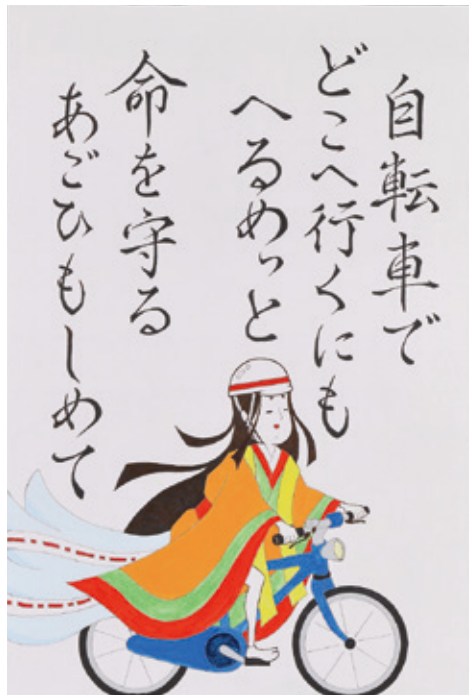 自転車で
どこへ行くにも
へるめっと
命を守る
あごひもしめて